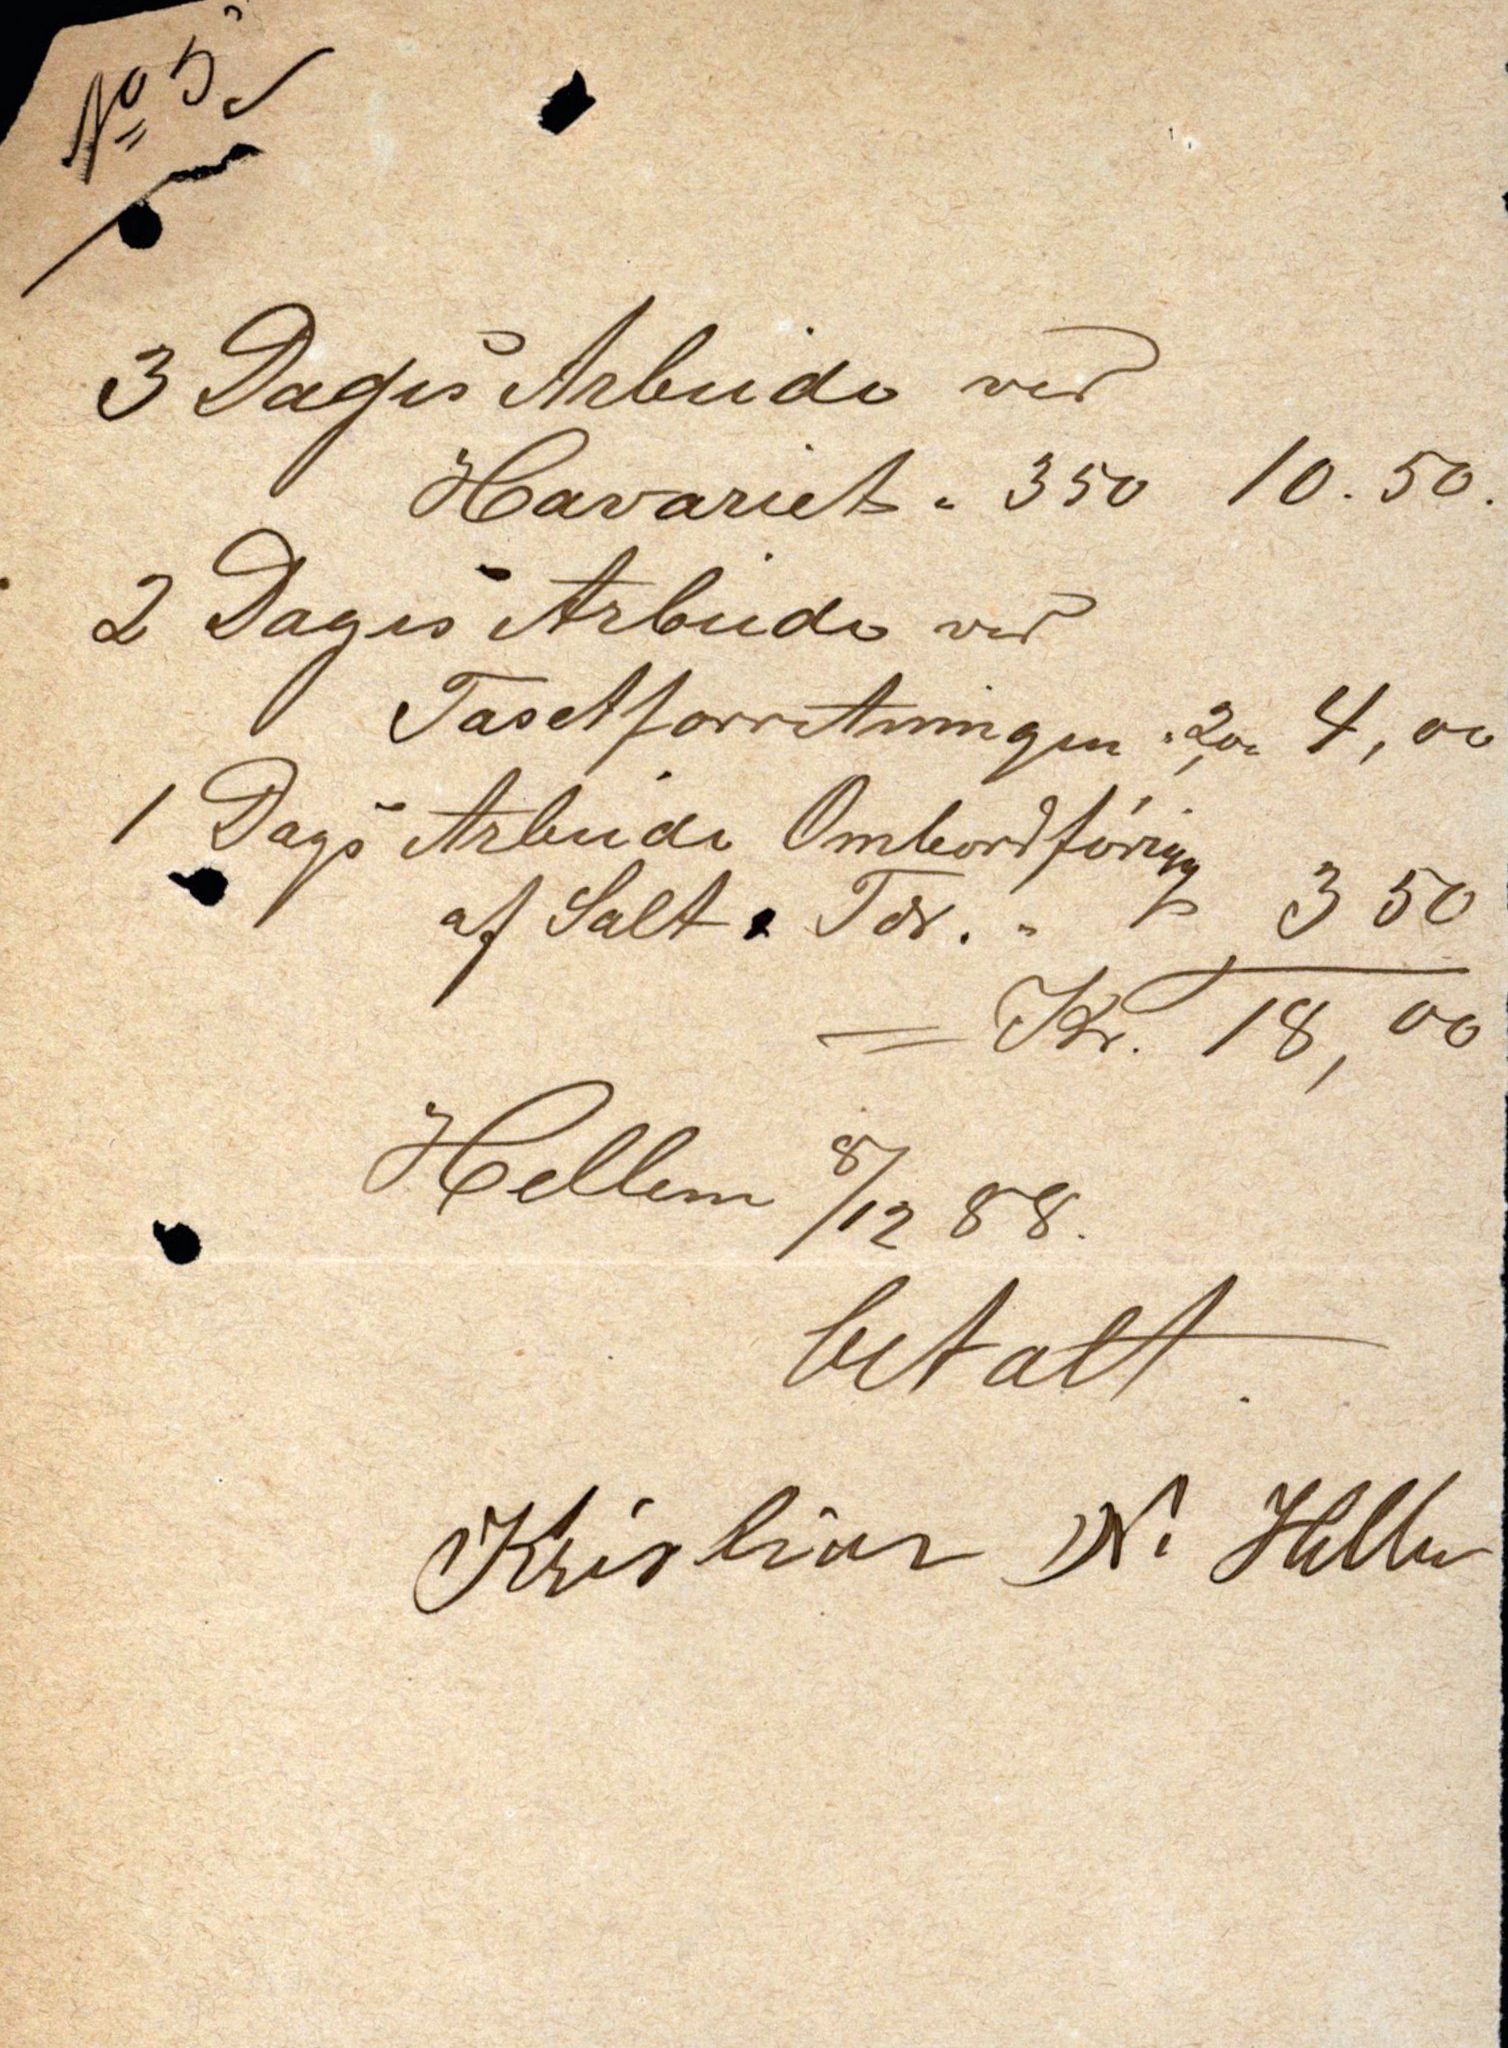 No 5
3 Dages Arbeide ved
Havariet " 350 10.50.
2 Dages Arbeide ved
Taxtforretningen " 2,00 4,00
1 Dags Arbeide Ombordføring
af Salt & Tdr. " " 3 50
= Kr. 18,00
Hellem 8/12 88.
betalt.
Kristian N. Hellem